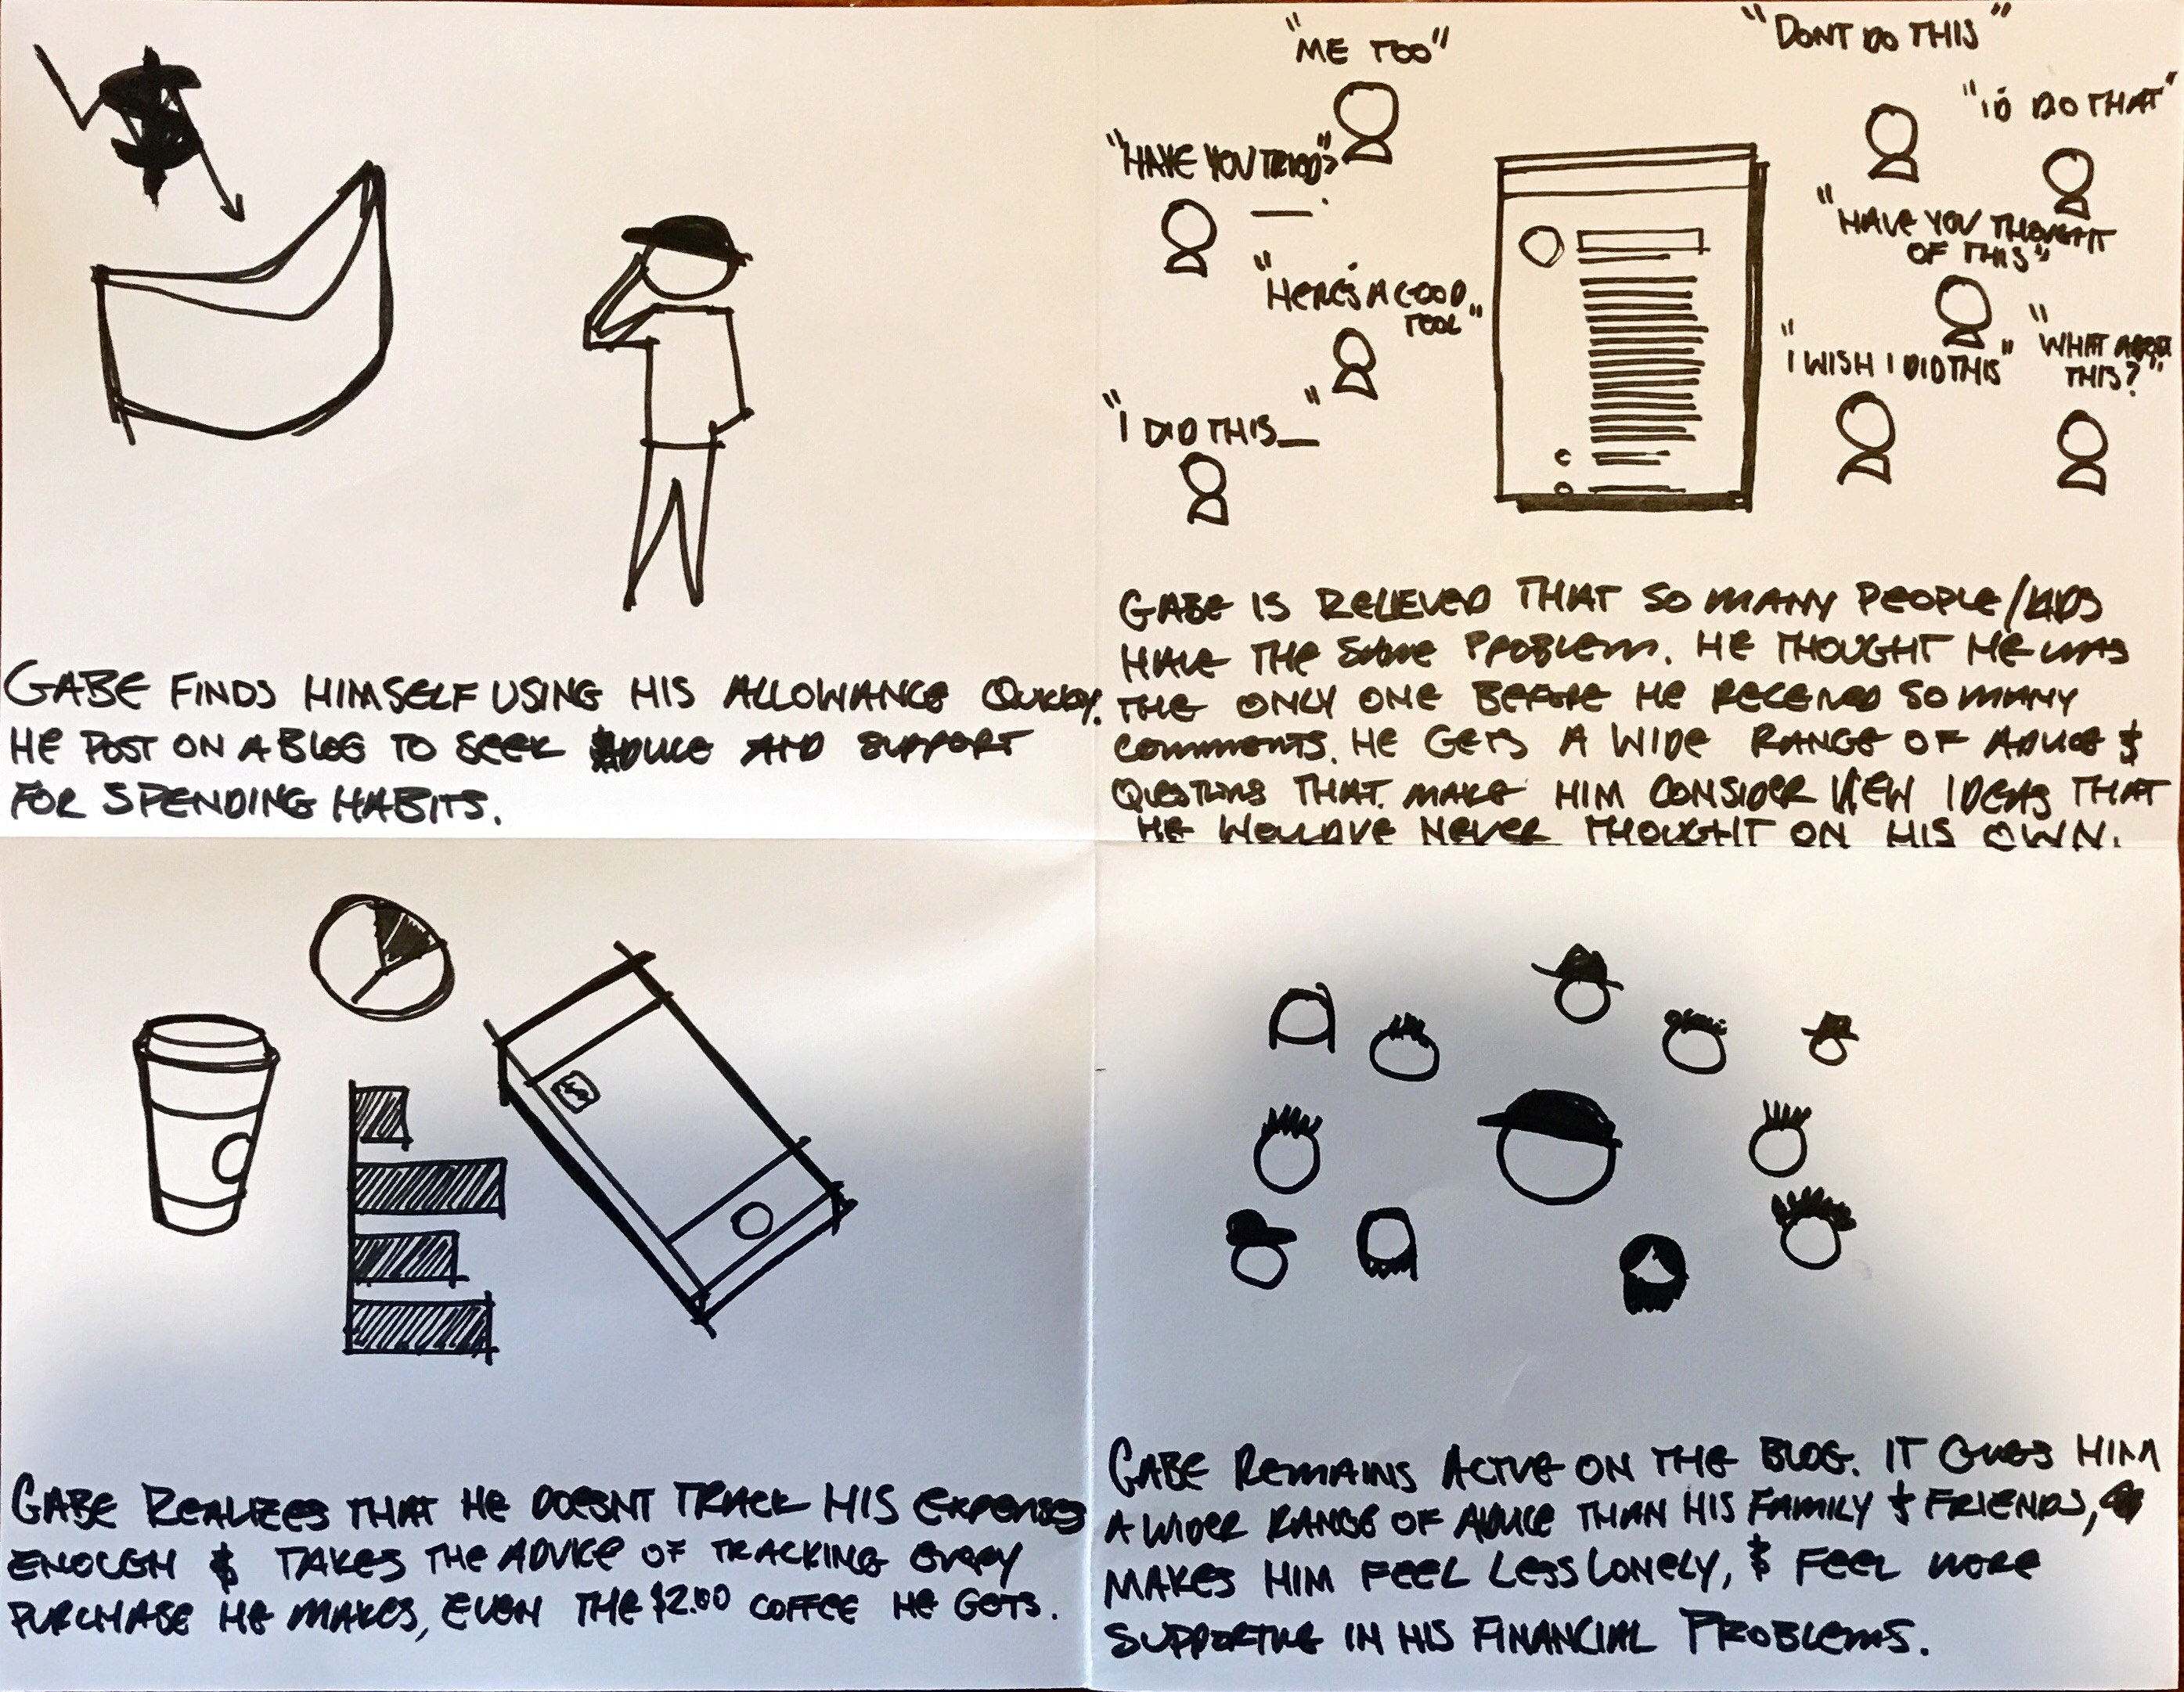 $
GABE FINDS HIMSELF USING HIS ALLOWANCE QUICKLY.
HE POST ON A BLOG TO SEEK ADVICE AND SUPPORT
FOR SPENDING HABITS.
"ME TOO"
"DONT DO THIS"
"I'D DO THAT"
"HAVE YOU TRIED?
"
"HAVE YOU THOUGHT
OF THIS"
"HERE'S A GOOD
TOOL"
"I WISH I DID THIS"
"WHAT ABOUT
THIS?"
"I DID THIS_"
GABE IS RELIEVED THAT SO MANY PEOPLE/KIDS
HAVE THE SAME PROBLEM. HE THOUGHT HE WAS
THE ONLY ONE BEFORE HE RECEIVED SO MANY
COMMENTS. HE GETS A WIDE RANGE OF ADVICE &
QUESTIONS THAT MAKE HIM CONSIDER NEW IDEAS THAT
HE WOULDAVE NEVER THOUGHT ON HIS OWN.
$
GABE REALIZES THAT HE DOESNT TRACK HIS EXPENSES
ENOUGH & TAKES THE ADVICE OF TRACKING EVERY
PURCHASE HE MAKES, EVEN THE $2.00 COFFEE HE GETS.
GABE REMAINS ACTIVE ON THE BLOG. IT GIVES HIM
A WIDER RANGE OF ADVICE THAN HIS FAMILY & FRIENDS,
MAKES HIM FEEL LESS LONELY, & FEEL MORE
SUPPORTIVE IN HIS FINANCIAL PROBLEMS.